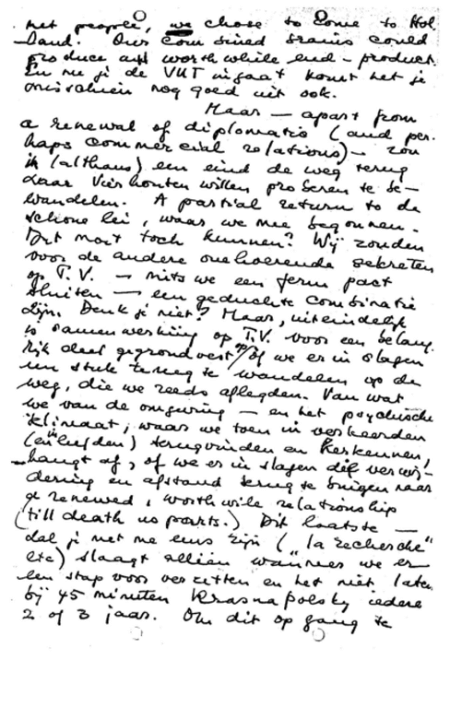 met people, we chose to come to Hol
land. Our combined brains could
produce a worth while end-product.
En nu je de VUT ingaat komt het je
misschien nog goed uit ook.
Maar — apart from
a renewal of diplomatic (and per
haps commercial relations) — zou
ik (althans) een eind de weg terug
naar Vierhouten willen proberen te be-
wandelen. A partial return to de
schone lei, waar we mee begonnen.
Dit moet toch kunnen? Wij zouden
voor de andere onbehoorende sekreten
op T.V. — mits we een ferm pact
sluiten — een geduchte combinatie
zijn. Denk je niet? Maar, uiteindelijk
is samenwerking op T.V. voor een belang
rijk deel gegrondvest op/of we er in slagen
een stuk terug te wandelen op de
weg, die we reeds aflegden. Van wat
we van de omgeving — en het psychische
klimaat, waar we toen in verkeerden
(en leefden) terugvinden en herkennen,
hangt af, of we er in slagen die verwij-
dering en afstand terug te brengen naar
a renewed, worth wile relationship
(till death us parts.) Dit laatste —
dat je met me eens zijn ("la recherche"
etc) slaagt alleen wanneer we er
een stap voor verzetten en het niet laten
bij 45 minuten Krasnapolsky iedere
2 of 3 jaar. Om dit op gang te